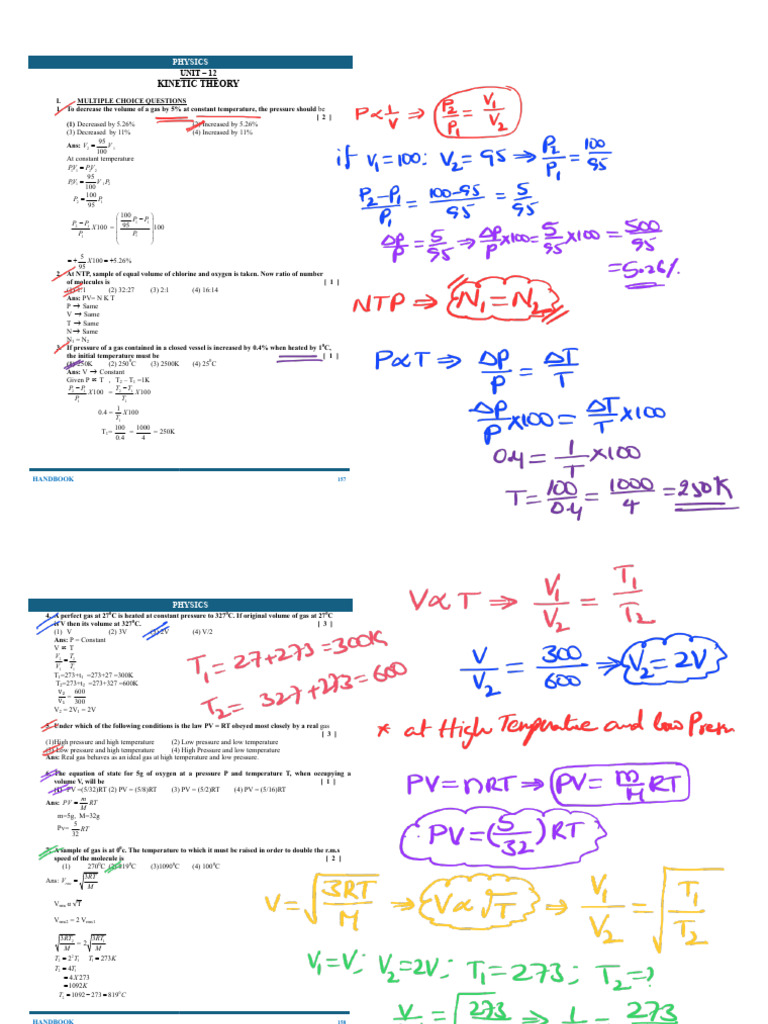 PHYSICS
UNIT – 12
KINETIC THEORY
I. MULTIPLE CHOICE QUESTIONS
1. To decrease the volume of a gas by 5% at constant temperature, the pressure should be
[ 2 ]
(1) Decreased by 5.26% (2) Increased by 5.26%
(3) Decreased by 11% (4) Increased by 11%
Ans: V₂ = 95/100 V₁
At constant temperature
P₁V₁ = P₂V₂
P₁V₁ = 95/100 V₁P₂
P₂ = 100/95 P₁
(P₂ − P₁)/P₁ X100 = ((100/95 P₁ − P₁)/P₁) 100
= + 5/95 X100 = +5.26%
2. At NTP, sample of equal volume of chlorine and oxygen is taken. Now ratio of number
of molecules is [ 1 ]
(1) 1:1 (2) 32:27 (3) 2:1 (4) 16:14
Ans: PV= N K T
P → Same
V → Same
T → Same
N → Same
N₁ = N₂
3. If pressure of a gas contained in a closed vessel is increased by 0.4% when heated by 1⁰C,
the initial temperature must be [ 1 ]
(1) 250K (2) 250⁰C (3) 2500K (4) 25⁰C
Ans: V → Constant
Given P ∝ T , T₂ – T₁ =1K
(P₂ − P₁)/P₁ X100 = (T₂ − T₁)/T₁ X100
0.4 = 1/T₁ X100
T₁= 100/0.4 = 1000/4 = 250K
HANDBOOK 157
P∝1/V ⇒ P₂/P₁ = V₁/V₂
if V₁=100: V₂ = 95 ⇒ P₂/P₁ = 100/95
P₂-P₁/P₁ = 100-95/95 = 5/95
ΔP/P = 5/95 ⇒ ΔP/P×100 = 5/95×100 = 500/95
=5.26%
NTP ⇒ N₁=N₂
P∝T ⇒ ΔP/P = ΔT/T
ΔP/P×100 = ΔT/T×100
0.4 = 1/T×100
T = 100/0.4 = 1000/4 = 250K
PHYSICS
4. A perfect gas at 27⁰C is heated at constant pressure to 327⁰C. If original volume of gas at 27⁰C
if V then its volume at 327⁰C. [ 3 ]
(1) V (2) 3V (3) 2V (4) V/2
Ans: P = Constant
V ∝ T
V₂/V₁ = T₂/T₁
T₁=273+t₁ =273+27 =300K
T₂=273+t₂ =273+327 =600K
V₂/V₁ = 600/300
V₂ = 2V₁ = 2V
5. Under which of the following conditions is the law PV = RT obeyed most closely by a real gas
[ 3 ]
(1)High pressure and high temperature (2) Low pressure and low temperature
(3) Low pressure and high temperature (4) High Pressure and low temperature
Ans: Real gas behaves as an ideal gas at high temperature and low pressure.
6. The equation of state for 5g of oxygen at a pressure P and temperature T, when occupying a
volume V, will be [ 1 ]
(1) PV =(5/32)RT (2) PV = (5/8)RT (3) PV = (5/2)RT (4) PV = (5/16)RT
Ans: PV = m/M RT
m=5g, M=32g
Pv= 5/32 RT
7. A sample of gas is at 0⁰c. The temperature to which it must be raised in order to double the r.m.s
speed of the molecule is [ 2 ]
(1) 270⁰C (2) 819⁰C (3)1090⁰C (4) 100⁰C
Ans: Vrms = √(3RT/M)
Vrms ∝ √T
Vrms2 = 2 Vrms1
√(3RT₂/M) = 2√(3RT₁/M)
T₂ = 2²T₁ T₁ = 273K
T₂ = 4T₁
= 4X273
= 1092K
T₂ = 1092 − 273 = 819⁰C
HANDBOOK 158
V∝T ⇒ V₁/V₂ = T₁/T₂
T₁ = 27+273 = 300K
T₂ = 327+273 = 600
V/V₂ = 300/600 ⇒ V₂=2V
* at High Temperature and low Press
PV=nRT → PV = m/M RT
PV = (5/32)RT
V = √(3RT/M) ⇒ V∝√T ⇒ V₁/V₂ = √(T₁/T₂)
V₁=V; V₂=2V; T₁=273; T₂=?